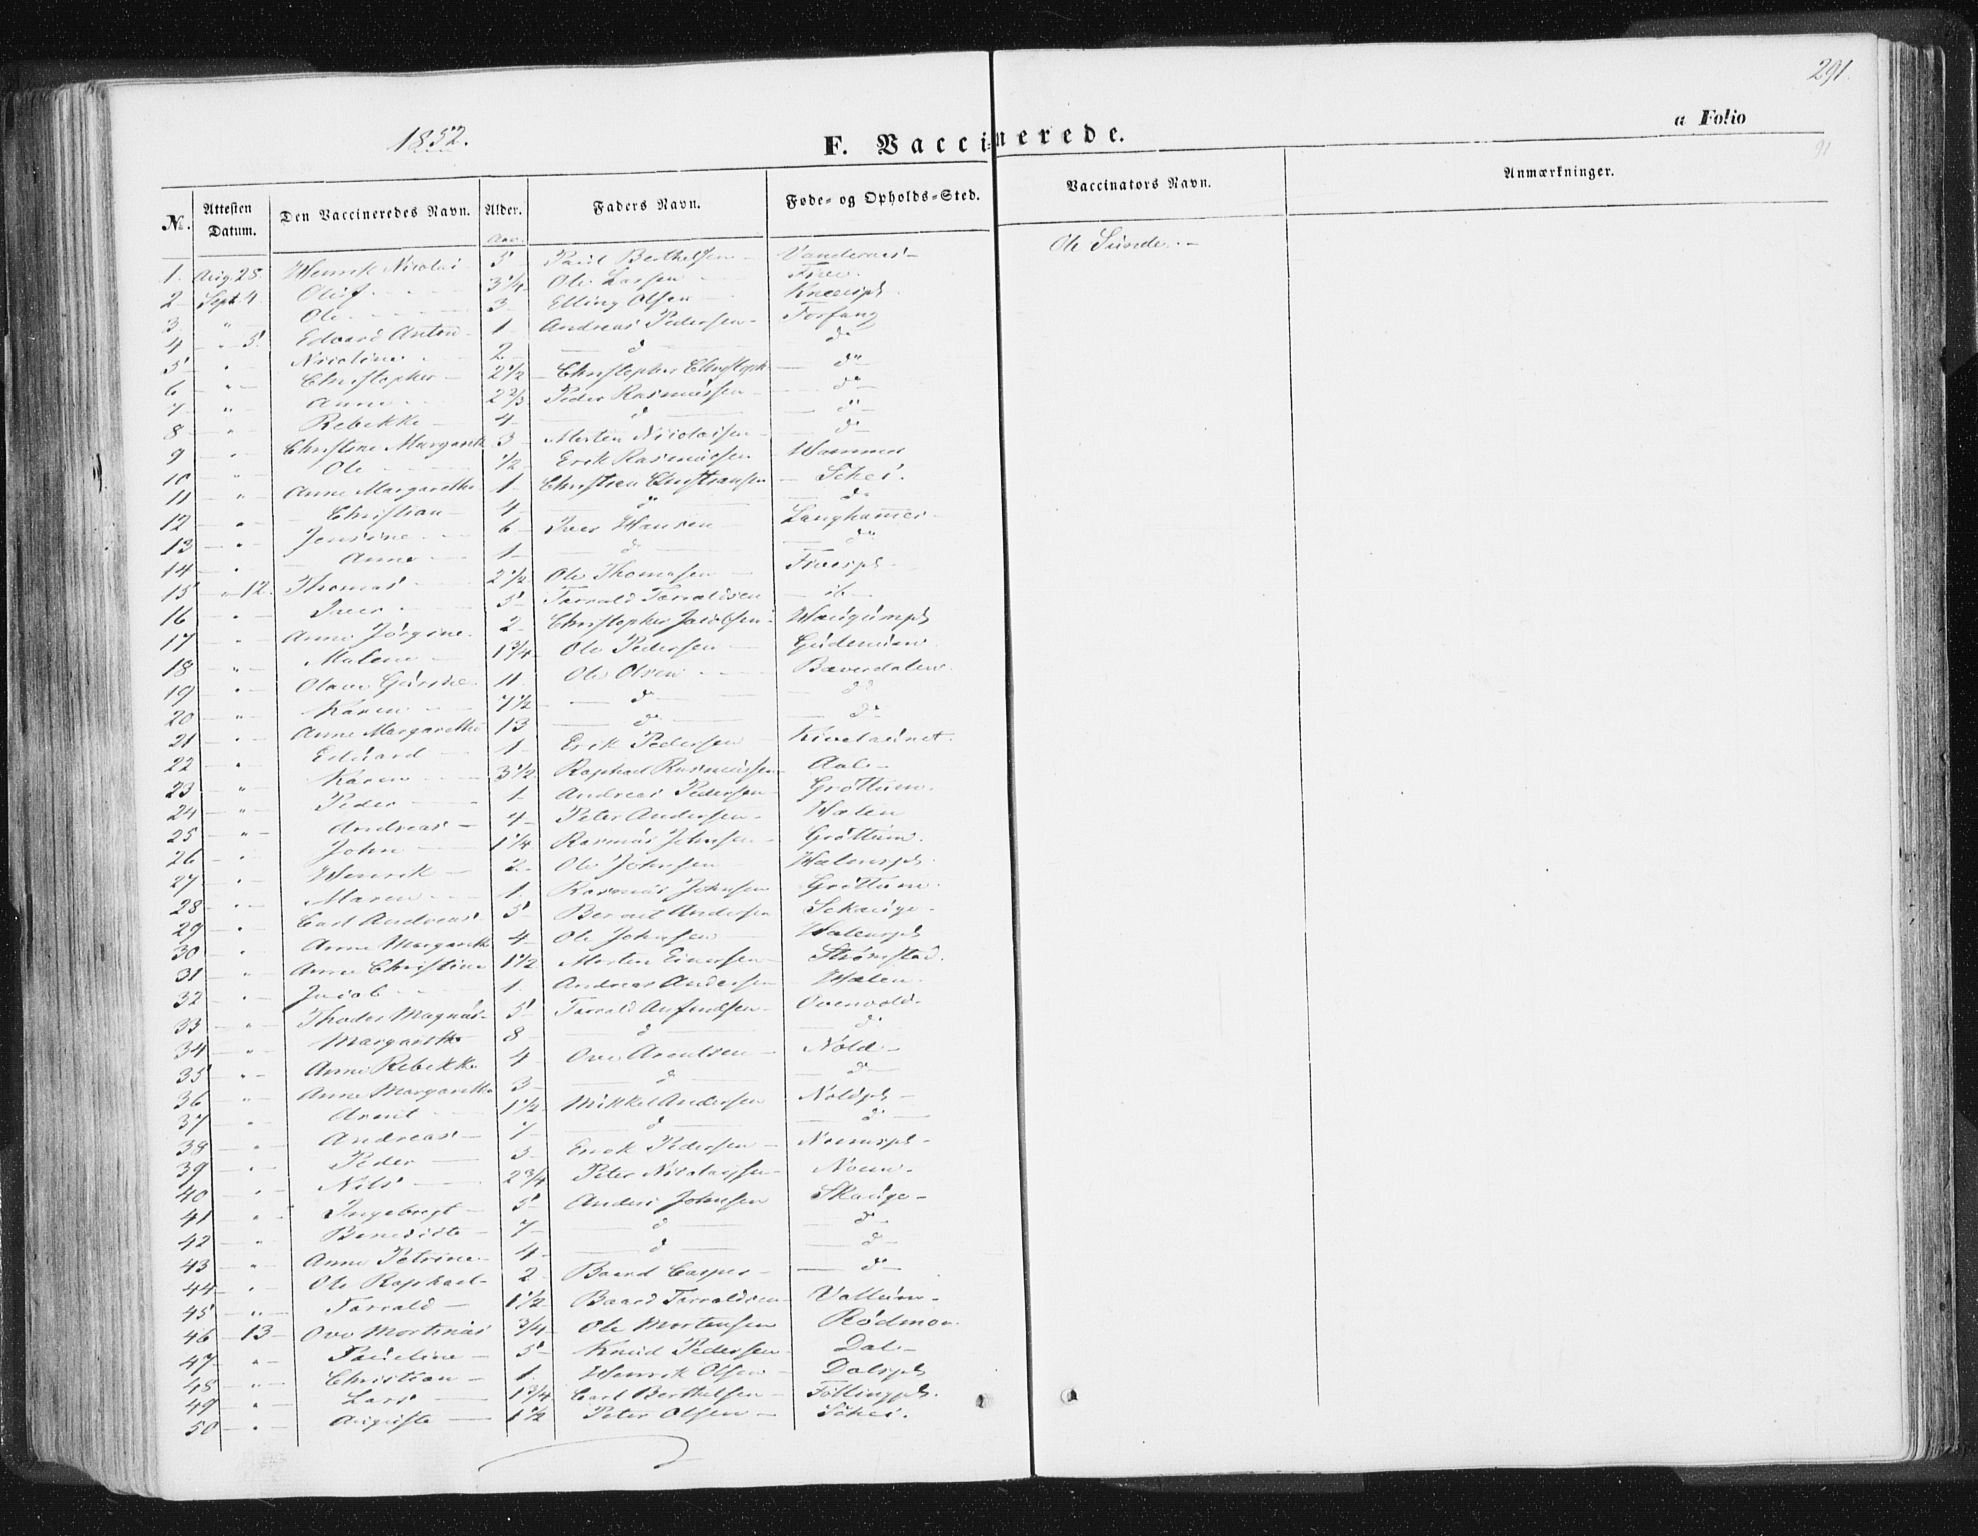 291.
a Folio
91
1852.
F. Vaccinerede.
№. Attesten Datum. Den Vaccineredes Navn. Alder. Faders Navn. Føde- og Opholds-Sted. Vaccinators Navn. Anmærkninger.
Aar.
1. Aug 28 Henrik Nicolai 5 Paul Berthelsen Ole Sunde
2 Sept 4 Oluf 3 1/4 Ole Larsen
3 " Ole 3 Elling Olsen
4 " 5 Edvard Anton 1 Andreas Pedersen Forfang
5 " Nicoline 2 d d
6 " Christopher 2 1/2 Christopher Christoph. d
7 " Anne 2 2/3 Peder Rasmussen d
8 " Rebekke 4 d d
9 " Christine Margareth 3 Morten Nicolaisen d
10 " Ole 1/2 Erik Rasmussen Hammer
11 " Anne Margarethe 1 Christian Christiansen Schei
12 " Christian 4 " d
13 " Jensine 6 Iver Hansen Langhammer
14 " Anne 1 d d
15 " 12. Thomas 2 1/2 Ole Thomasen
16 " Iver 5 Torrald Torraldsen ib
17 " Anne Jørgine 2 Christopher Jacobsen Haugumpl
18 " Malene 1 3/4 Ole Pedersen
19 " 11 Ole Olsen Bæverdalen
20 " Karen 7 1/2 d d
21 " Anne Margarethe 13 d d
22 " Edvard 1 Erik Pedersen
23 " Karen 3 1/2 Raphael Rasmussen
24 " Peder 1 Andreas Pedersen Grøttum
25 " Andreas 4 Peter Andersen Hælen
26 " John 1 1/4 Rasmus Johnsen Grøttum
27 " Henrik 2 Ole Johnsen Hælenspl
28 " Maren 1 Rasmus Johnsen Grøttum
29 " Carl Andreas 5 Bernt Andersen Schauge
30 " Anne Margarethe 4 Ole Johnsen Hælenspl
31 " Anne Christine 1 1/2 Morten Einersen Strømstad
32 " Jacob 1 Andreas Andersen Hælen
33 " Magnus 5 Torrald Overvold
34 " Margarethe 8 d d
35 " Anne Rebekke 4 Ove Arentsen Nøld
36 " Anne Margarethe 3 d d
37 " Arent 1 1/2 Mikkel Andersen Nøldpl
38 " Andreas 7 d d
39 " Peder 3 Erik Pedersen
40 " Nils 2 3/4 Peter Nicolaysen
41 " Ingebregt 5 Anders Johnsen Skauge
42 " Benedicte 7 d d
43 " Anne Petrine 4 d d
44 " Ole Raphael 2 Baard Casper d
45 " Torrald 1 1/2 Baard Torraldsen Vollum
46 13 Ove Mortinus 3/4 Ole Mortensen Rødmoe
47 " Pauline 5 Knud Pedersen Dal
48 " Christian 1 Henrik Olsen Dalspl
49 " Lars 1 3/4 Carl Berthelsen Føllingpl
50 " Auguste 1 1/2 Peter Olsen Schei